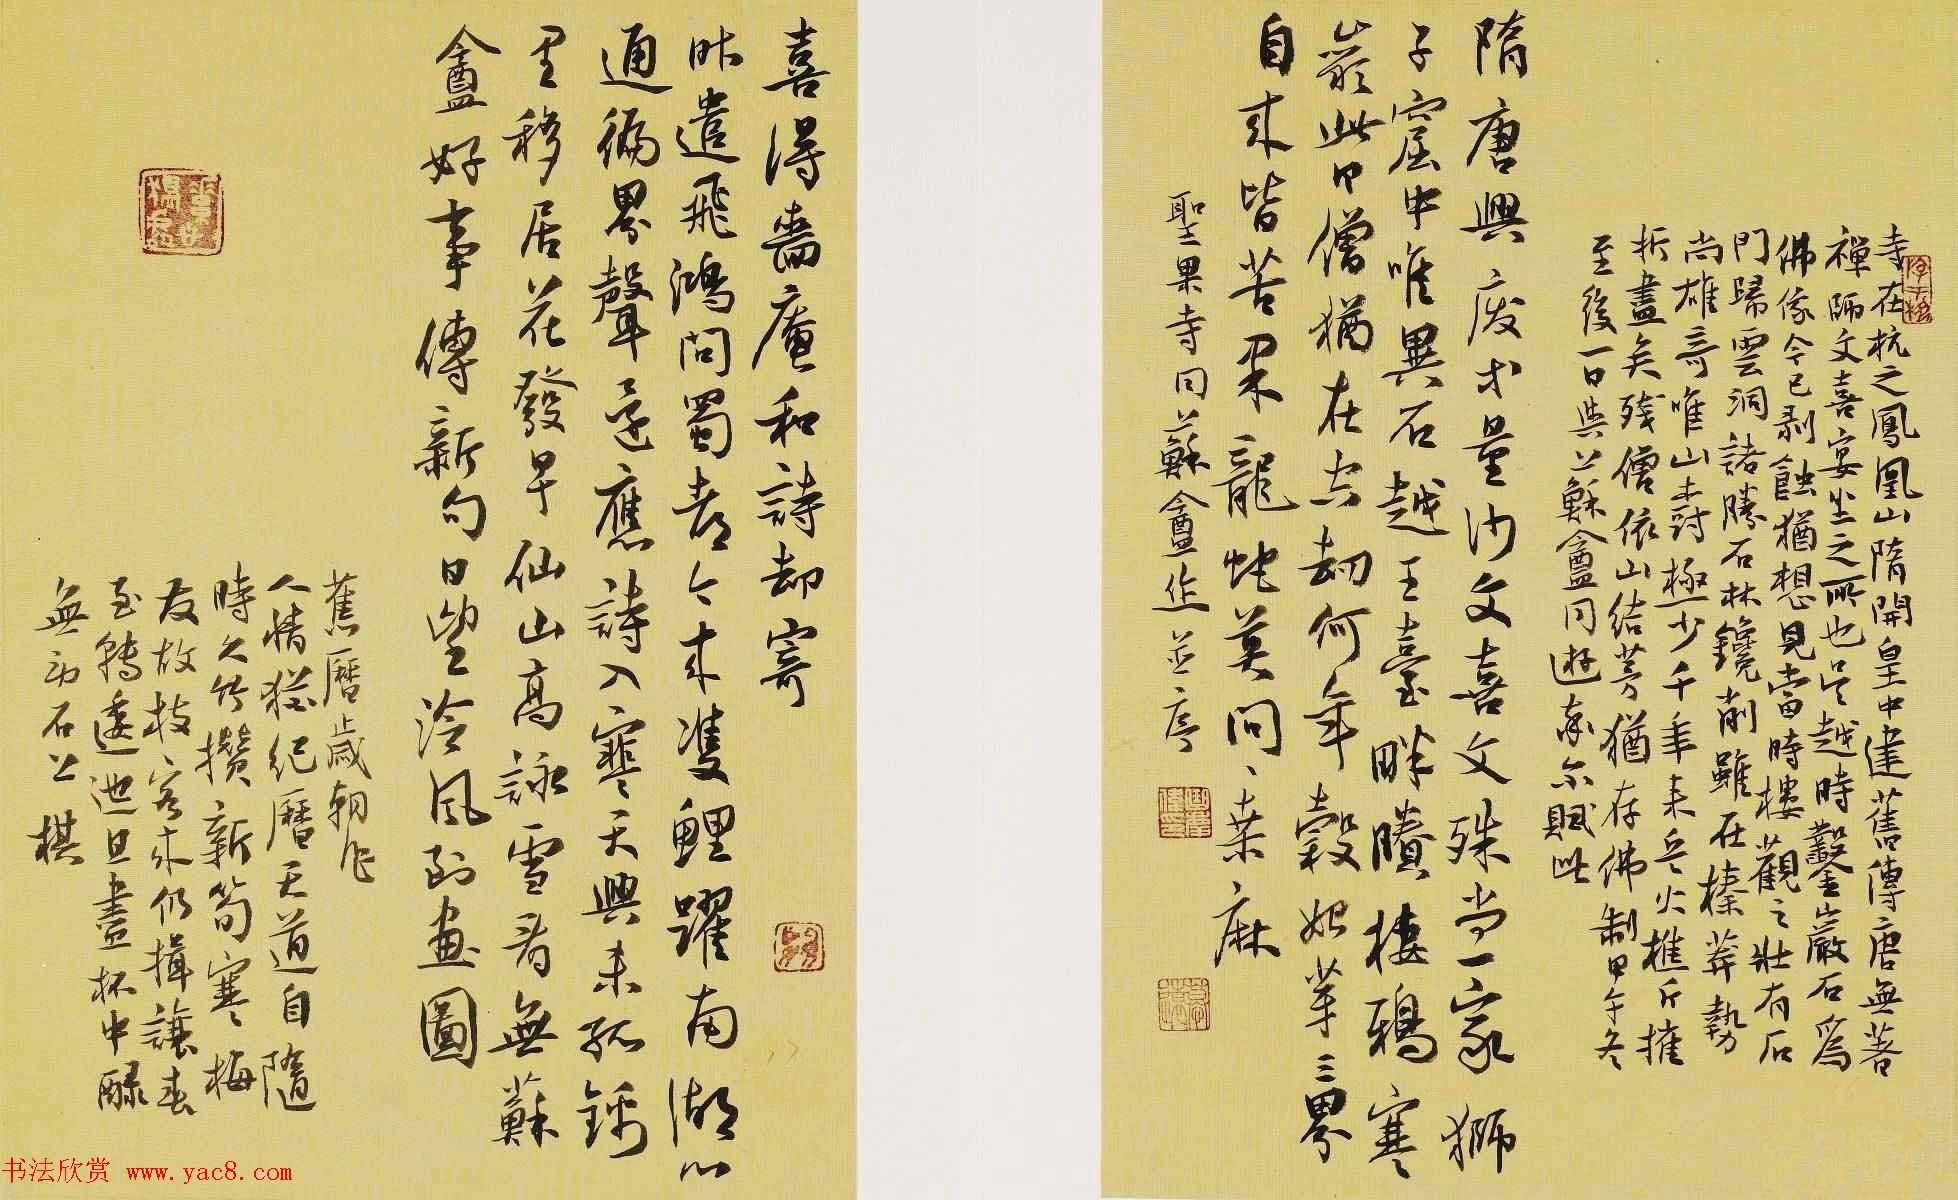 寺在杭之鳳凰山隋開皇中建舊傳唐無著
禪師文喜宴坐之所也吴越時鑿巖石爲
佛像今已剥蝕猶想見當時樓觀之壯有石
門歸雲洞諸勝石林鑱削雖在榛莽勢
尚雄奇唯山極少千年来兵火樵斤摧
折盡矣殘僧依山結茅猶存佛制甲午冬
至後一日與蘇盦同遊率尔賦此
隋唐興廢等量沙文喜文殊尚一家獅
子窟中唯異石越王臺畔賸棲鴉寒
巖此日僧猶在空劫何年穀始芽三界
自来皆苦聚龍蛇莫問、桑麻
聖果寺同蘇盦作並序
喜得嗇庵和詩却寄
昨遣飛鴻問蜀都今来雙鯉躍南湖心
通徧界聲還應詩入寒天興未孤錦
里移居花發早仙山高詠雪看無蘇
盦好事傳新句日望泠風到畫圖
舊曆歲朝作
人情猶紀曆天道自隨
時久竹攢新筍寒梅
友故枝客来仍揖讓春
至轉逶迤且盡杯中醁
無勞石上棋
书法欣赏 www.yac8.com